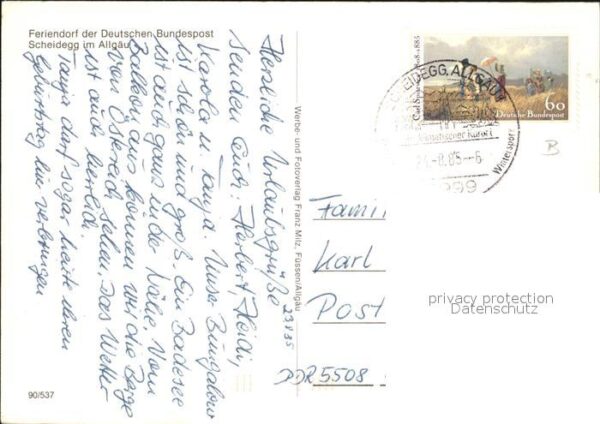 Feriendorf der Deutschen Bundespost
Scheidegg im Allgäu
Herzliche Urlaubsgrüße
senden Euch: Herbert, Heidi,
Karola u. Tanja. Unser Bungalow
ist schön und groß. Ein Badesee
ist auch ganz in der Nähe. Vom
Balkon aus können wir die Berge
von Östereich sehen. Das Wetter
ist auch herrlich.
Tanja darf sogar heute ihren
Geburtstag hier verbringen
Werbe- und Fotoverlag Franz Milz, Füssen/Allgäu
23835
90/537
SCHEIDEGG, ALLGÄU
Klimatischer Kurort
Wintersport
-8.85-6
Carl Spitzweg 1808-1885
60
Deutsche Bundespost
B
Famil
Karl
Post
DDR 5508
privacy protection
Datenschutz